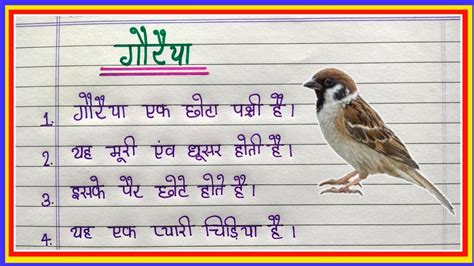 गौरैया
1. गौरैया एक छोटा पक्षी है।
2. यह मूरी एंव धूसर होती है।
3. इसके पैर छोटे होते है।
4. यह एक प्यारी चिड़िया है।